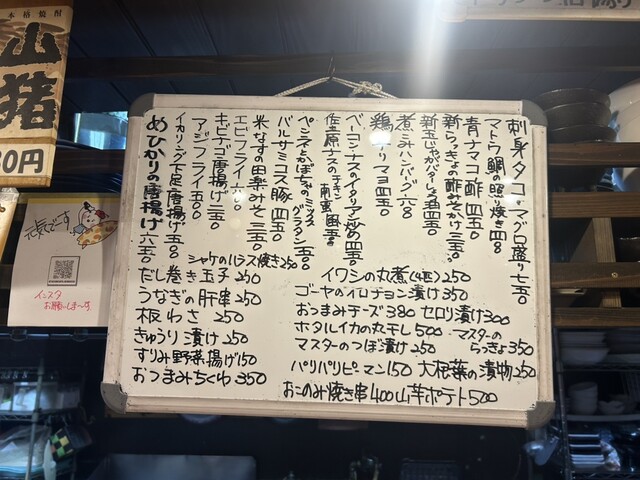 刺身タコ・マグロ盛り七五〇
マトウ鯛の照り焼き四八〇
青ナマコ酢四五〇
新らっきょの酢みそかけ三五〇
新玉じゃがバターしょう油四五〇
煮こみハンバーグ六八〇
鶏レバ四五〇
ベーコンナスのイタリアン炒め四五〇
佐土原ナスのチキン南蛮風五五〇
ペンネとかぼちゃのミックスグラタン五〇〇
バルサミコス豚四五〇
米なすの田楽みそ三五〇
エビフライ六五〇
キビナゴ唐揚げ三五〇
アジフライ五五〇
イカリング下足唐揚げ五八〇
めひかりの唐揚げ六五〇
シャケのハラス焼き250
だし巻き玉子250
うなぎの肝串250
板わさ 250
きゅうり漬け250
すりみ野菜揚げ150
おつまみちくわ350
イワシの丸煮(4匹)250
ゴーヤのイロチョン漬け350
おつまみチーズ380 セロリ漬け300
ホタルイカの丸干し500
マスターのらっきょ350
マスターのつぼ漬け250
パリパリピーマン150 大根葉の漬物250
おこのみ焼き串400 山芋ポテト500
本格焼酎
山猪
元気です
インスタ
お願いしま～す